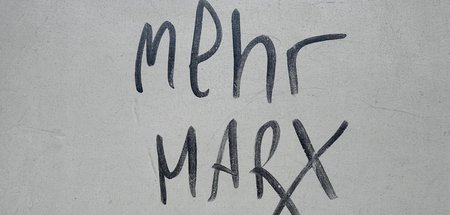 mehr
MARX